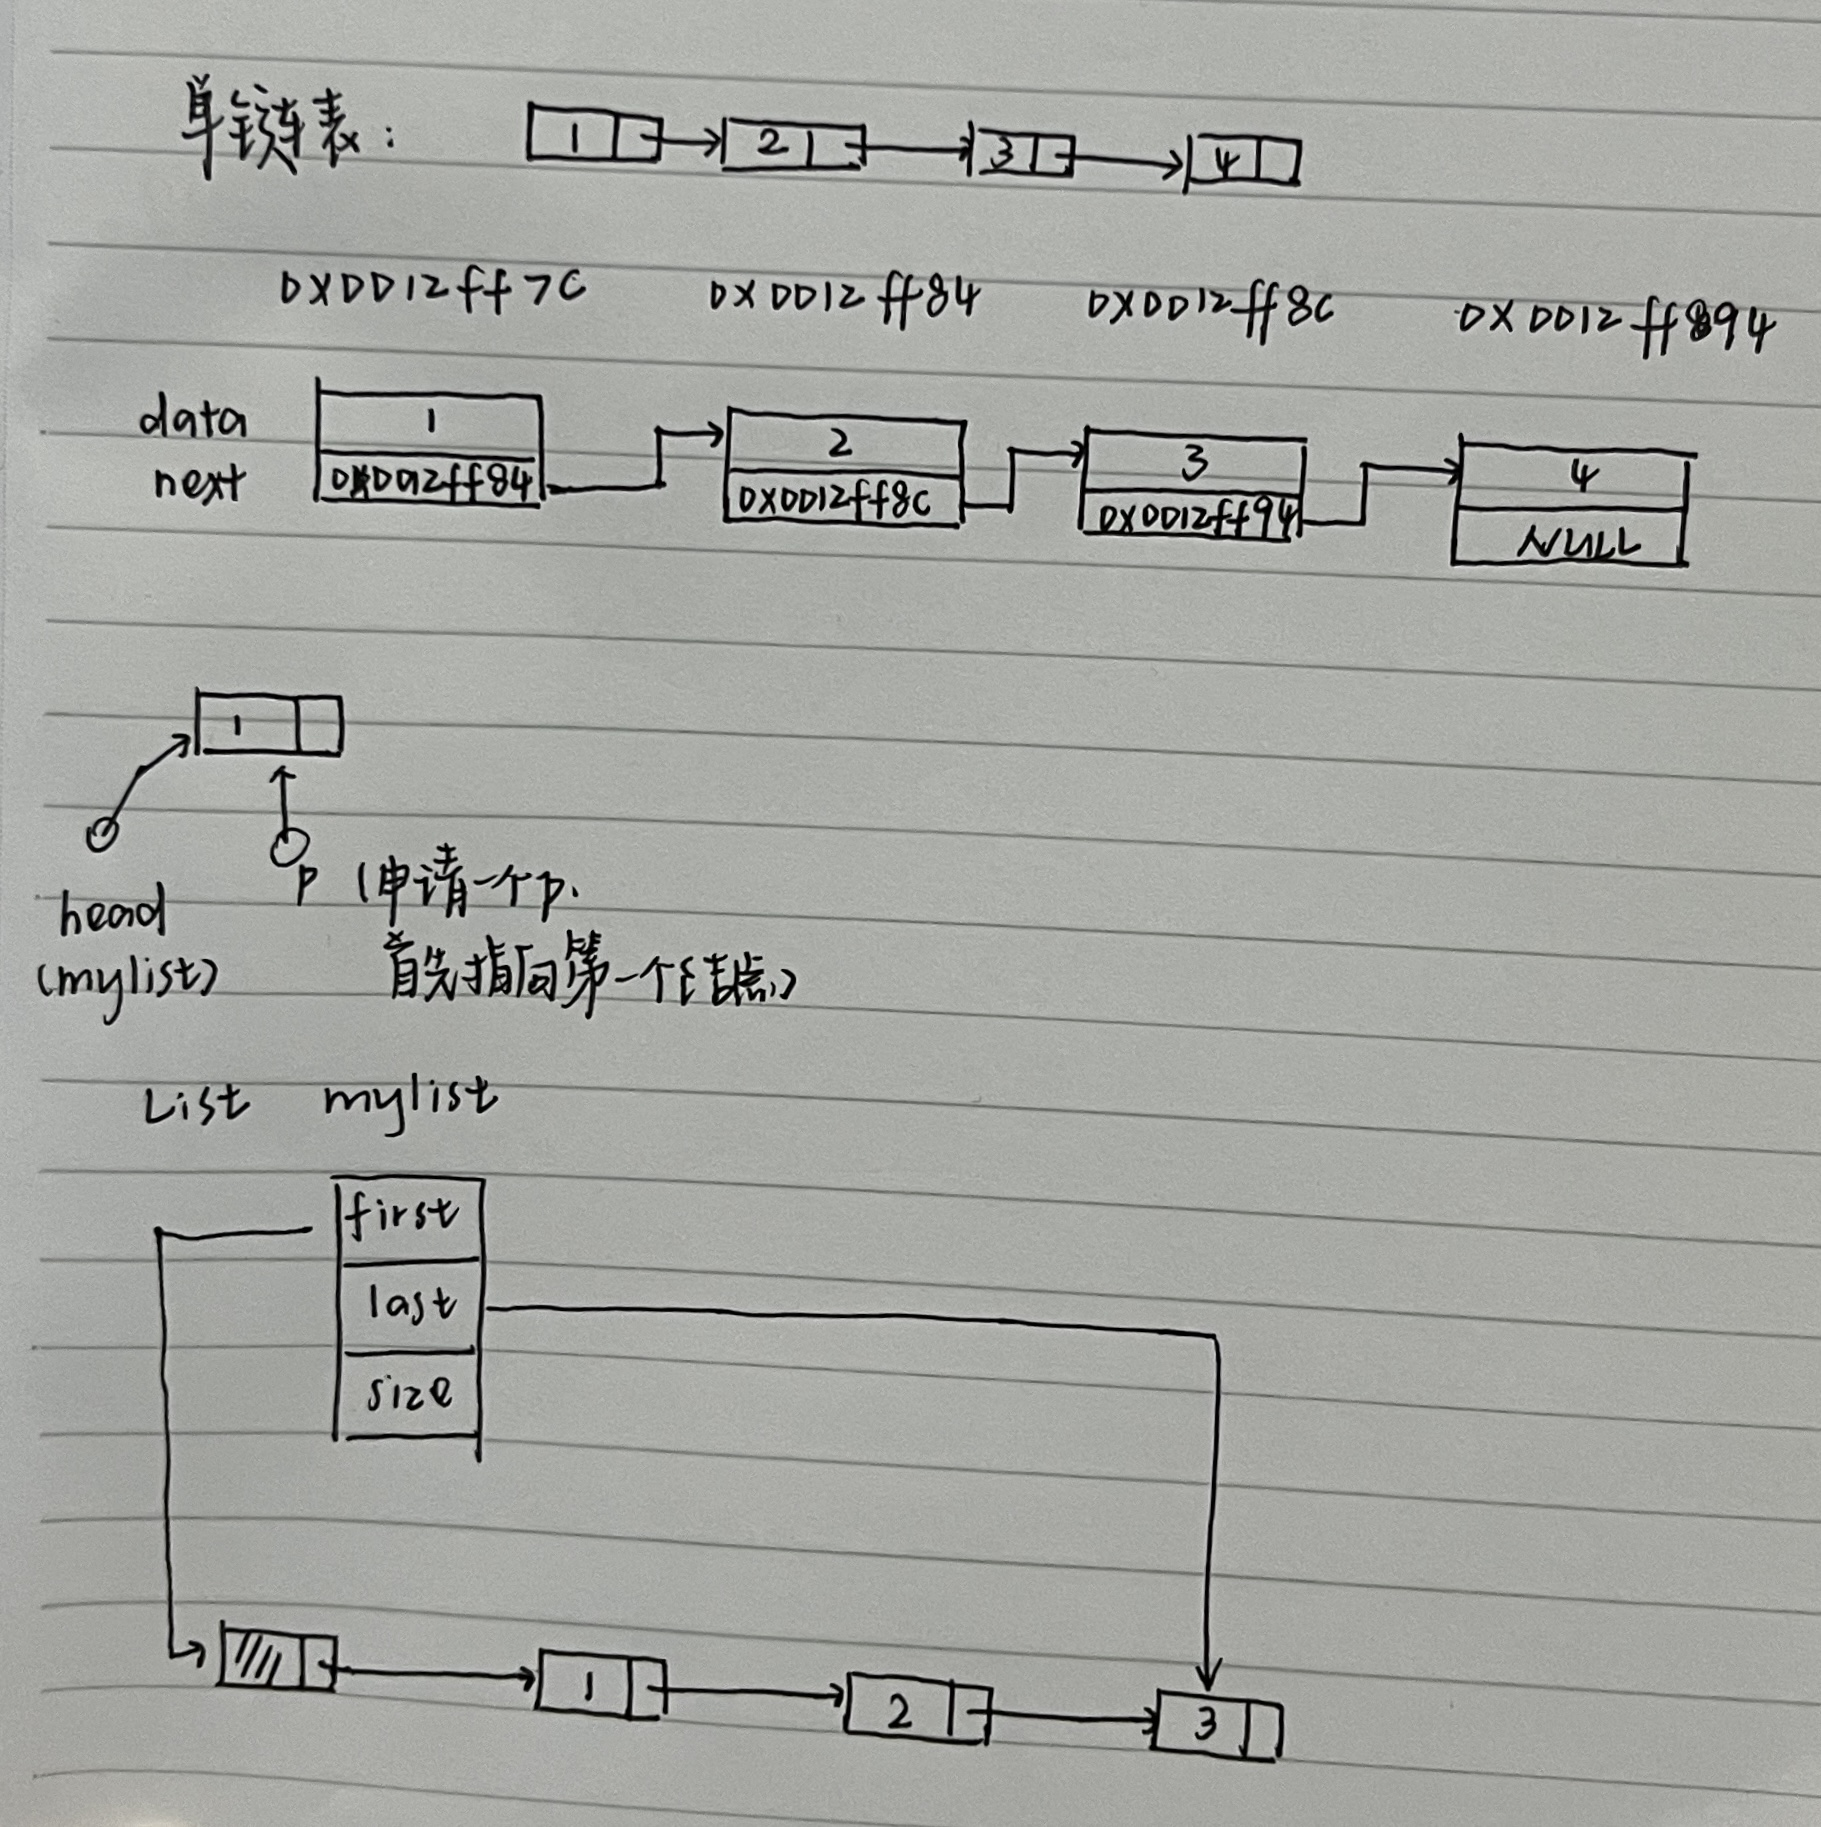 单链表：
1 2 3 4
0X0012ff7C 0X0012ff84 0X0012ff8C 0X0012ff94
data 1 2 3 4
next 0X0012ff84 0X0012ff8C 0X0012ff94 NULL
1
p (申请一个p.
head
(mylist) 首先指向第一个结点)
List mylist
first
last
size
1 2 3